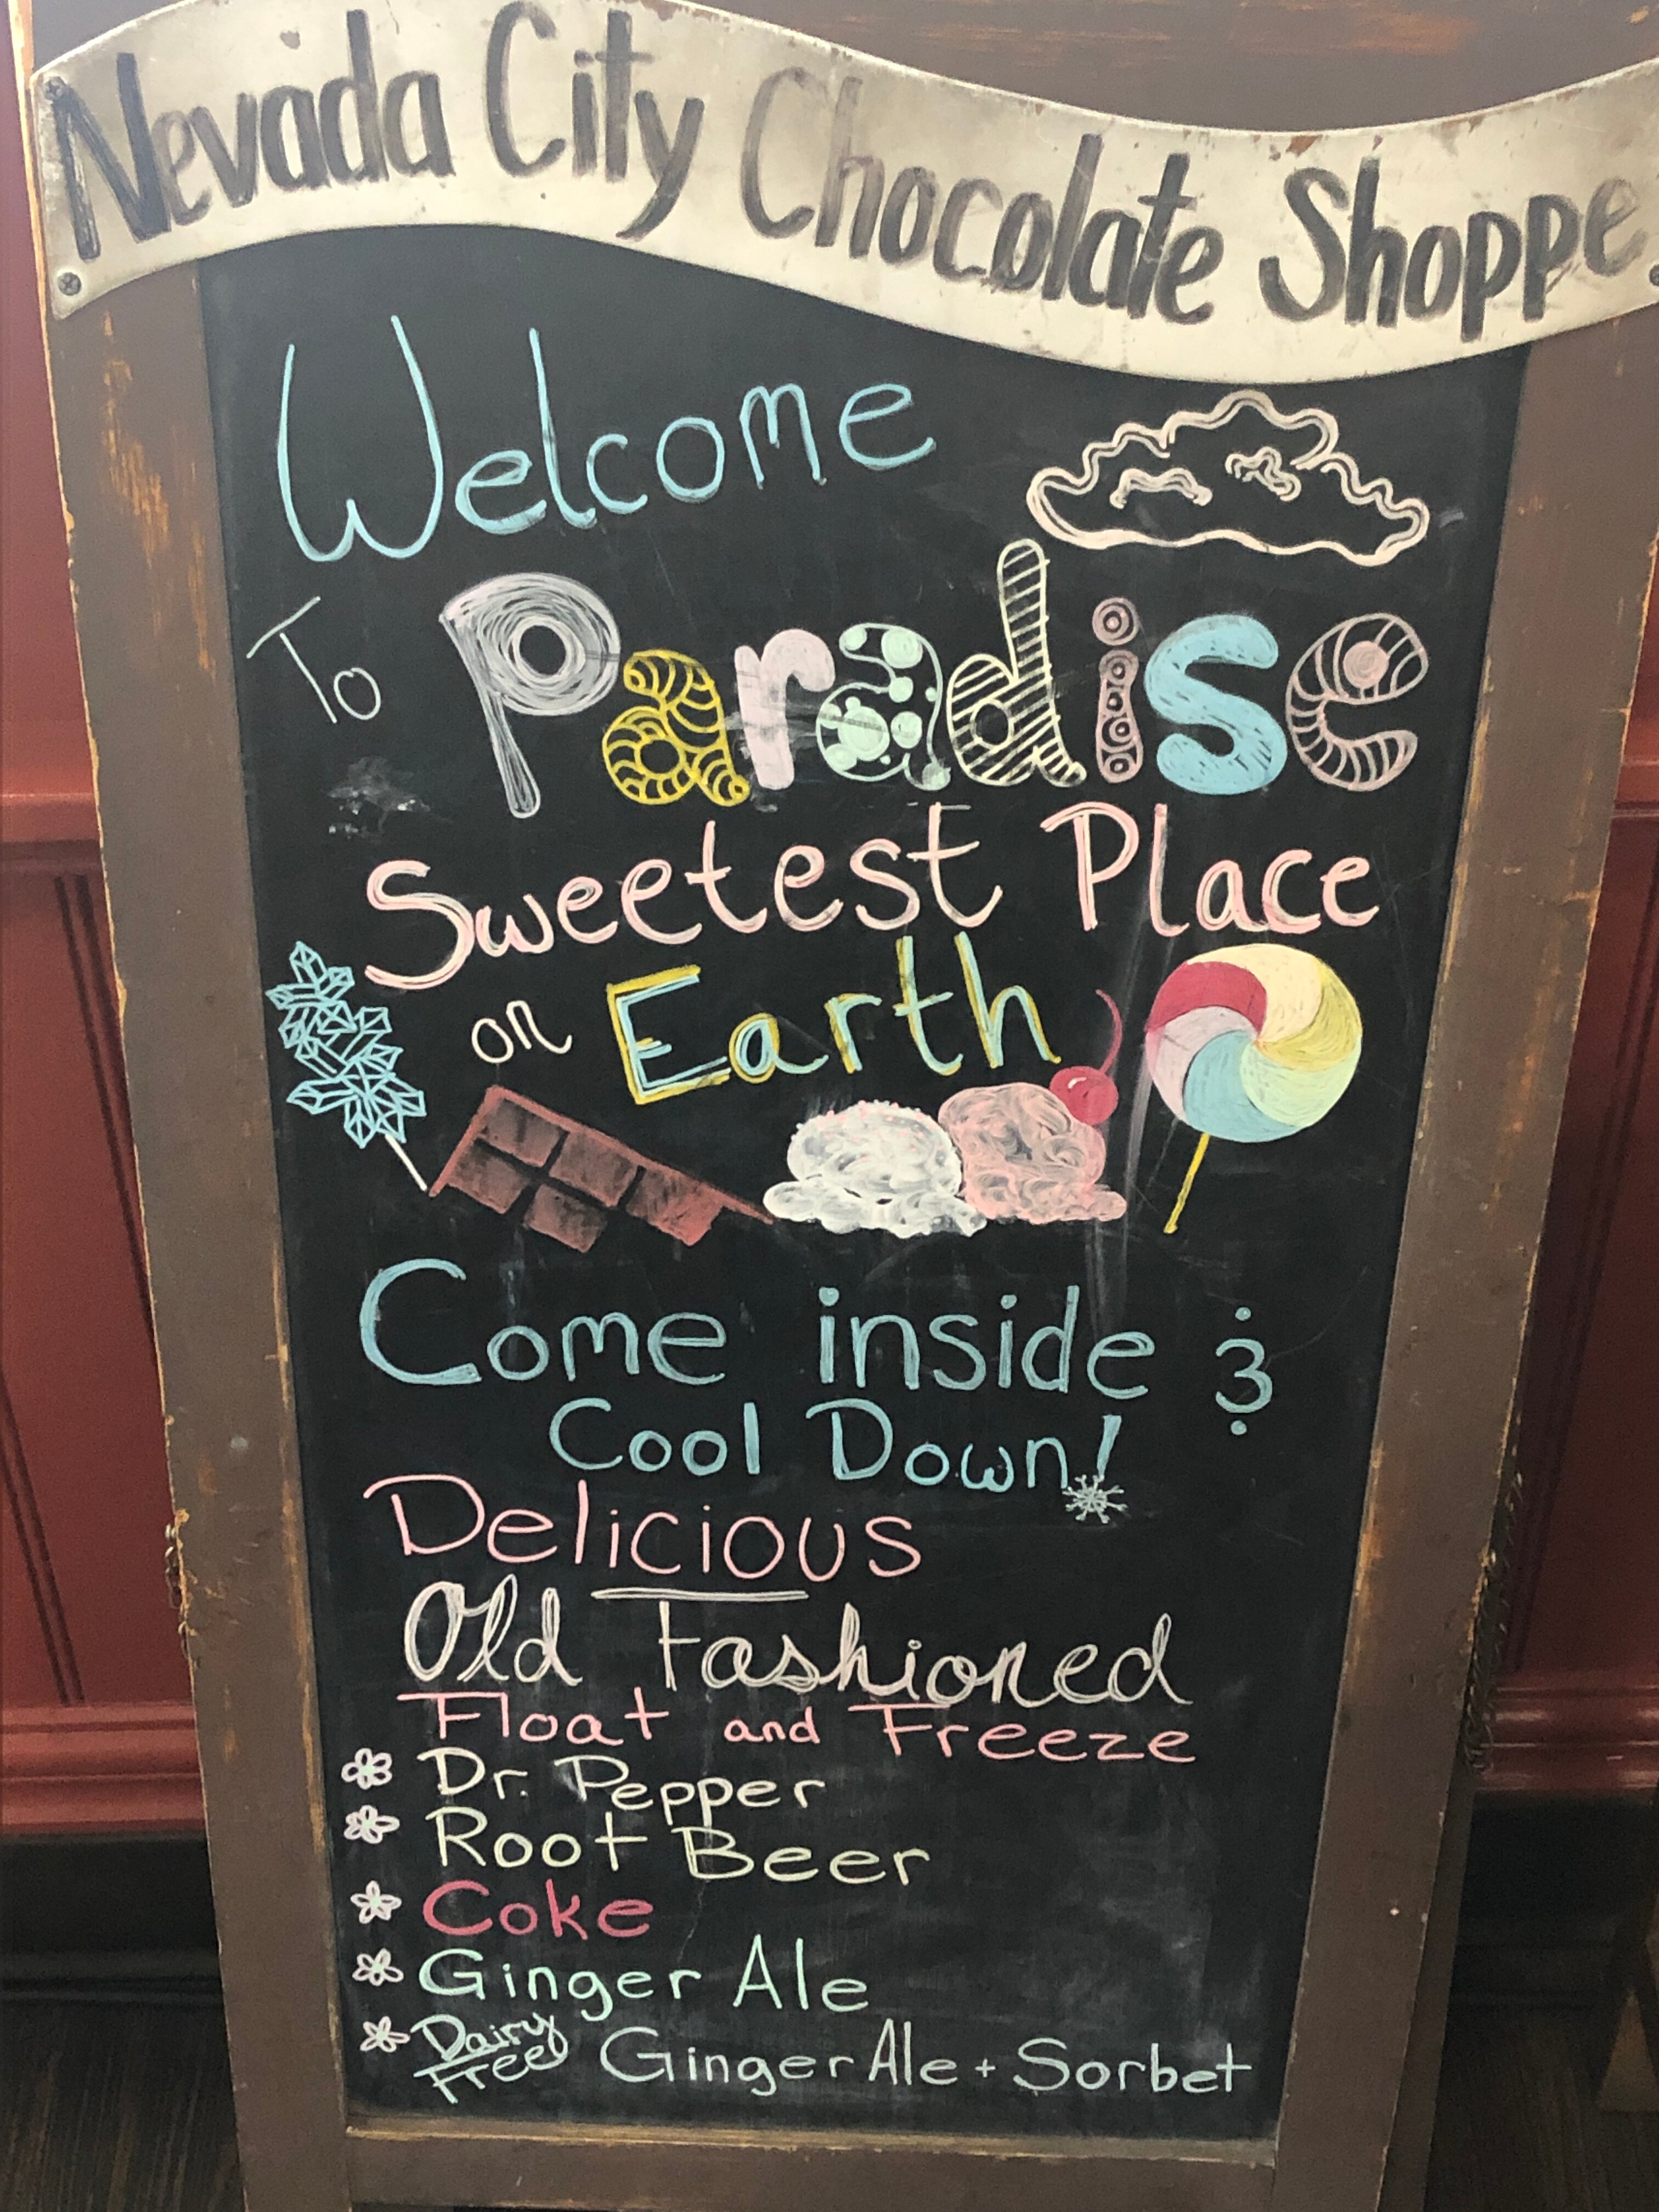 Nevada City Chocolate Shoppe
Welcome
To Paradise
Sweetest Place
on Earth
Come inside &
Cool Down!
Delicious
Old Fashioned
Float and Freeze
Dr. Pepper
Root Beer
Coke
Ginger Ale
Dairy Free! Ginger Ale + Sorbet